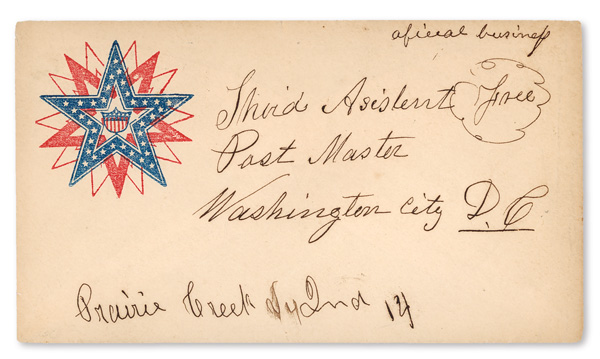 oficial business
Third Asistent Free
Post Master
Washington city D. C
Prairie Creek Ind 14